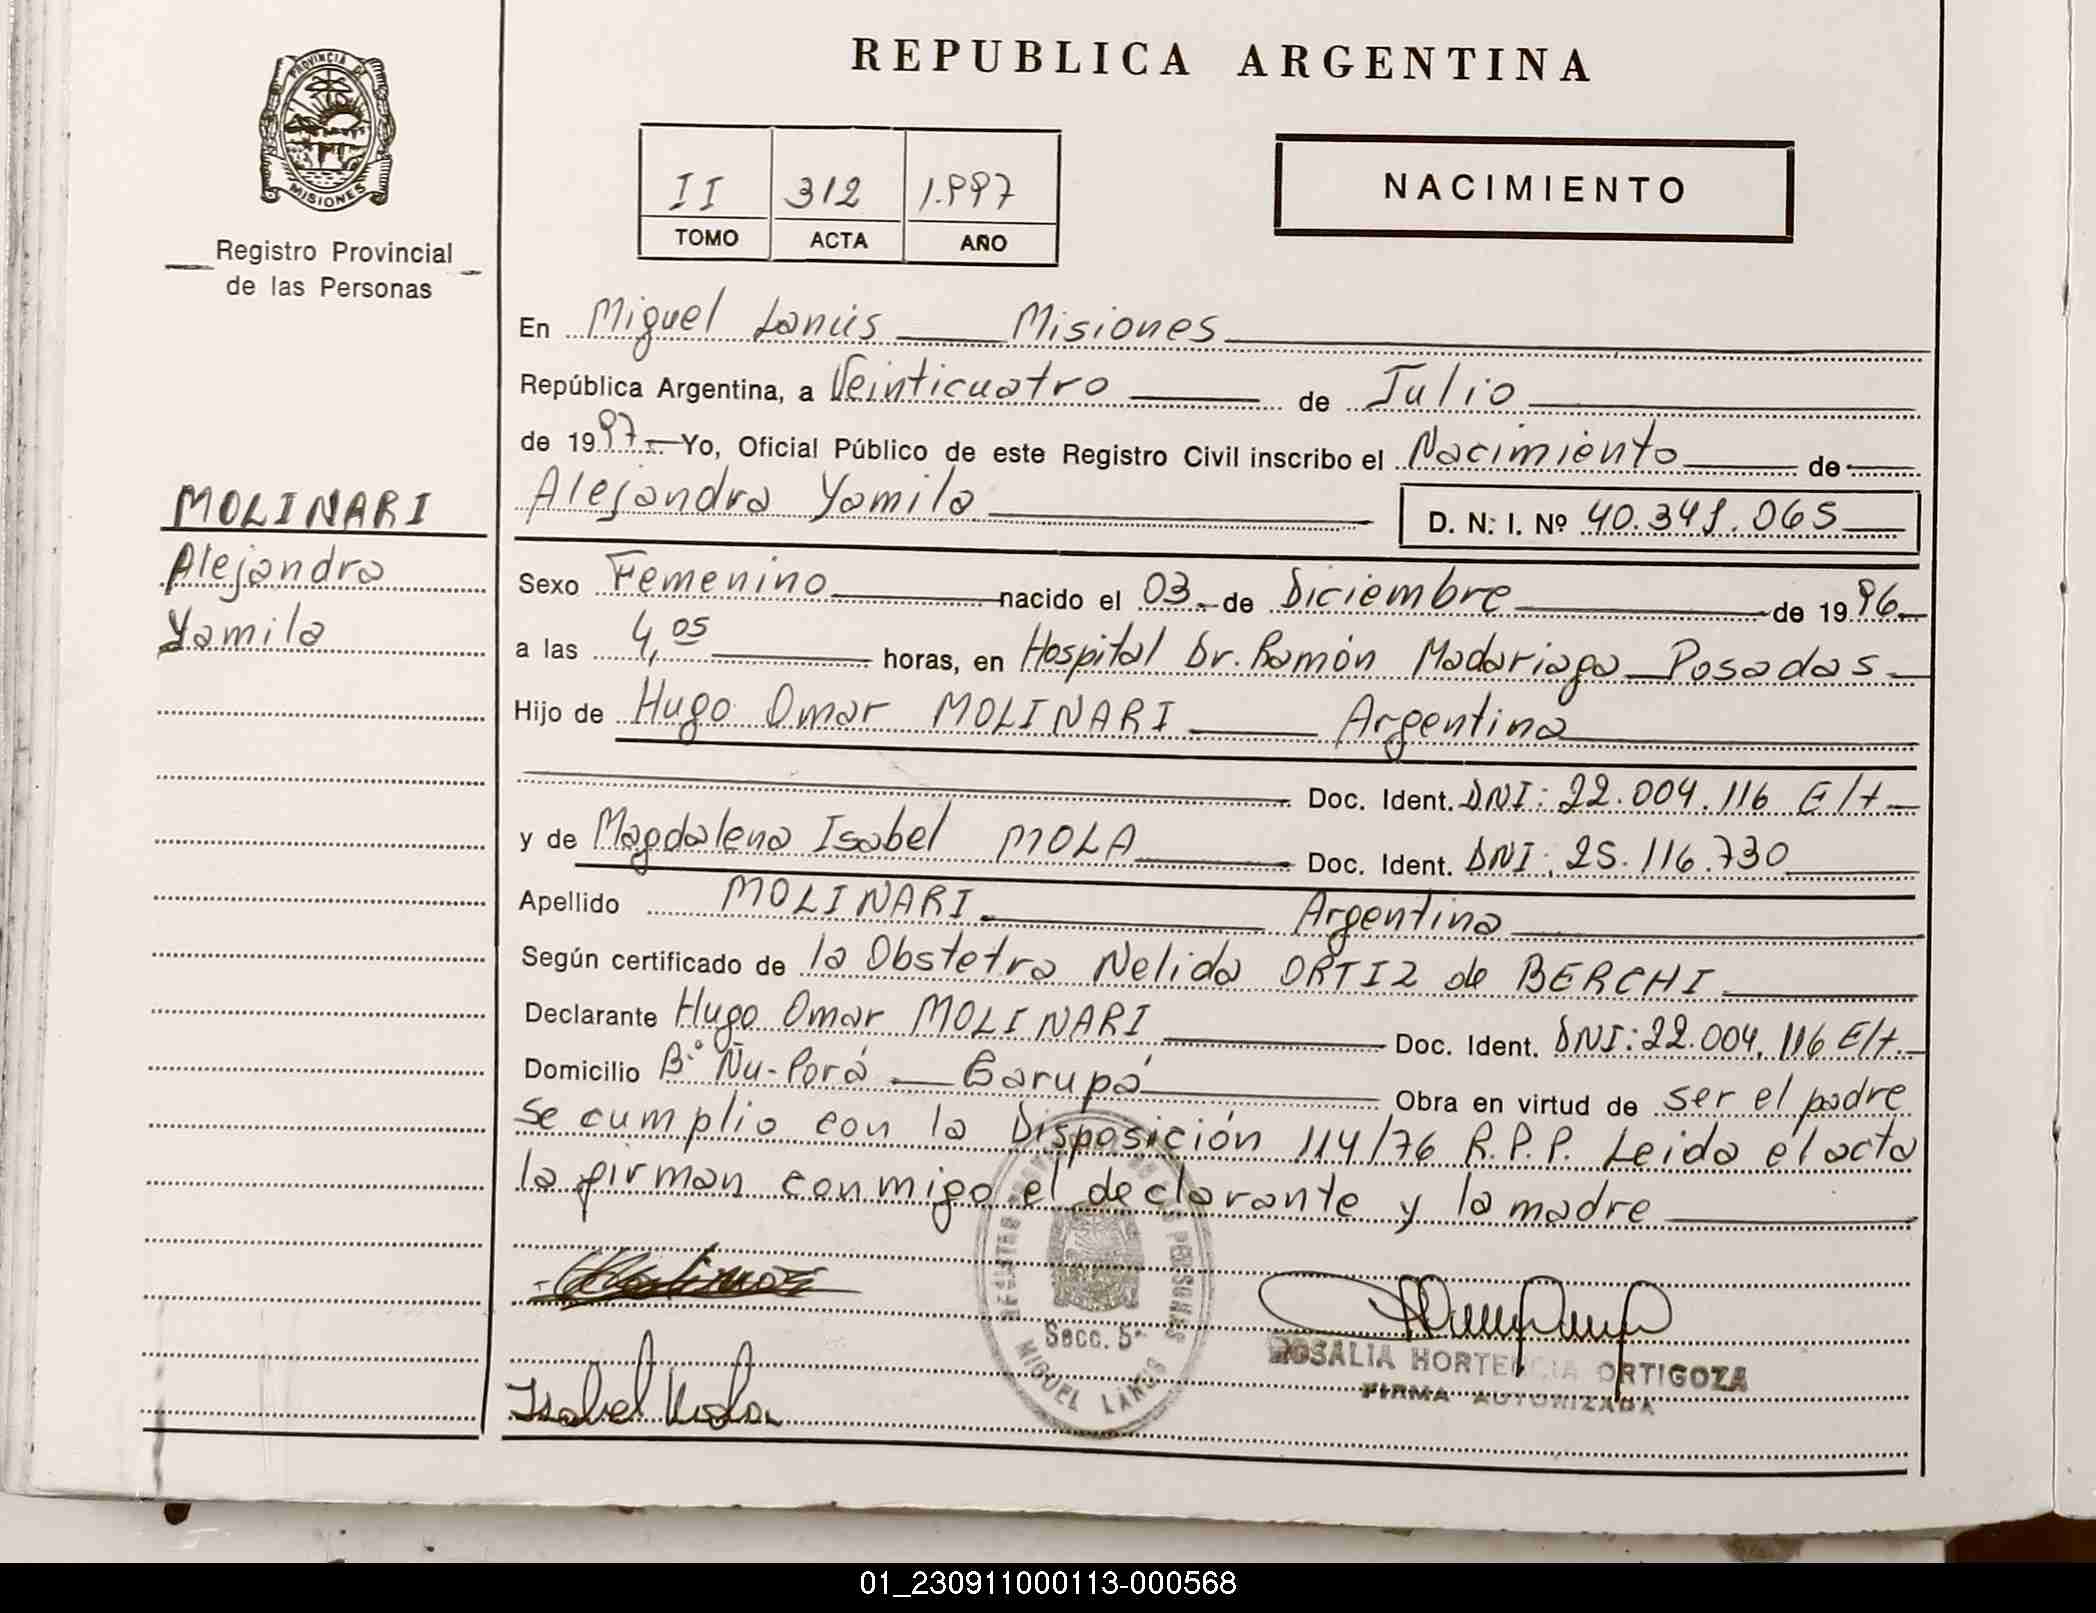 REPUBLICA ARGENTINA
PROVINCIA DE
MISIONES
Registro Provincial
de las Personas
II 312 1.997
TOMO ACTA AÑO
NACIMIENTO
En Miguel Lanús Misiones
República Argentina, a Veinticuatro de Julio
de 1997.- Yo, Oficial Público de este Registro Civil inscribo el Nacimiento de
Alejandra Yamila
D. N: I. Nº 40.341.065
MOLINARI
Alejandra
Yamila
Sexo Femenino nacido el 03.- de Diciembre de 1996.-
a las 4,05 horas, en Hospital Dr. Ramón Madariaga Posadas
Hijo de Hugo Omar MOLINARI Argentina
Doc. Ident. DNI: 22.004.116 E/t
y de Magdalena Isabel MOLA Doc. Ident. DNI: 25.116.730
Apellido MOLINARI Argentina
Según certificado de la Obstetra Nelida ORTIZ de BERCHI
Declarante Hugo Omar MOLINARI Doc. Ident. DNI: 22.004.116 E/t.
Domicilio Bº Ñu-Porá Garupá Obra en virtud de ser el padre
Se cumplio con la Disposición 114/76 R.P.P. Leida el acta
la firman conmigo el declarante y la madre
REGISTRO PROVINCIAL DE LAS PERSONAS
Secc. 5ª
MIGUEL LANUS
ROSALIA HORTENCIA ORTIGOZA
FIRMA AUTORIZADA
Isabel Mola
01_230911000113-000568